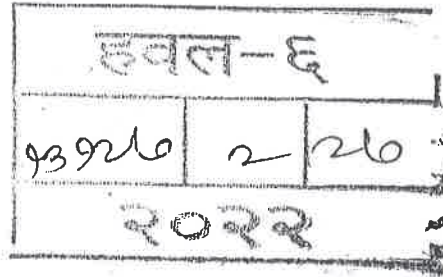 हवल-६
१३१२७ २ २७
२०२२